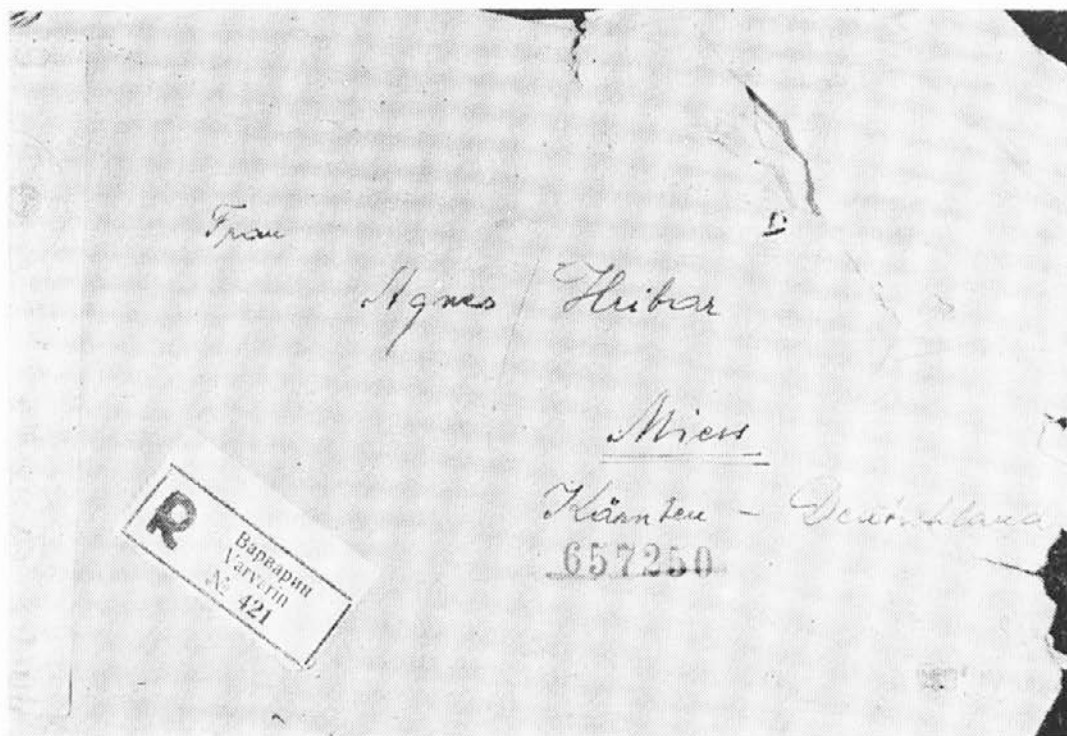 Frau
Agnes Hribar
Miess
Kärnten - Deutschland
657250
R
Варварин
Varvarin
№ 421